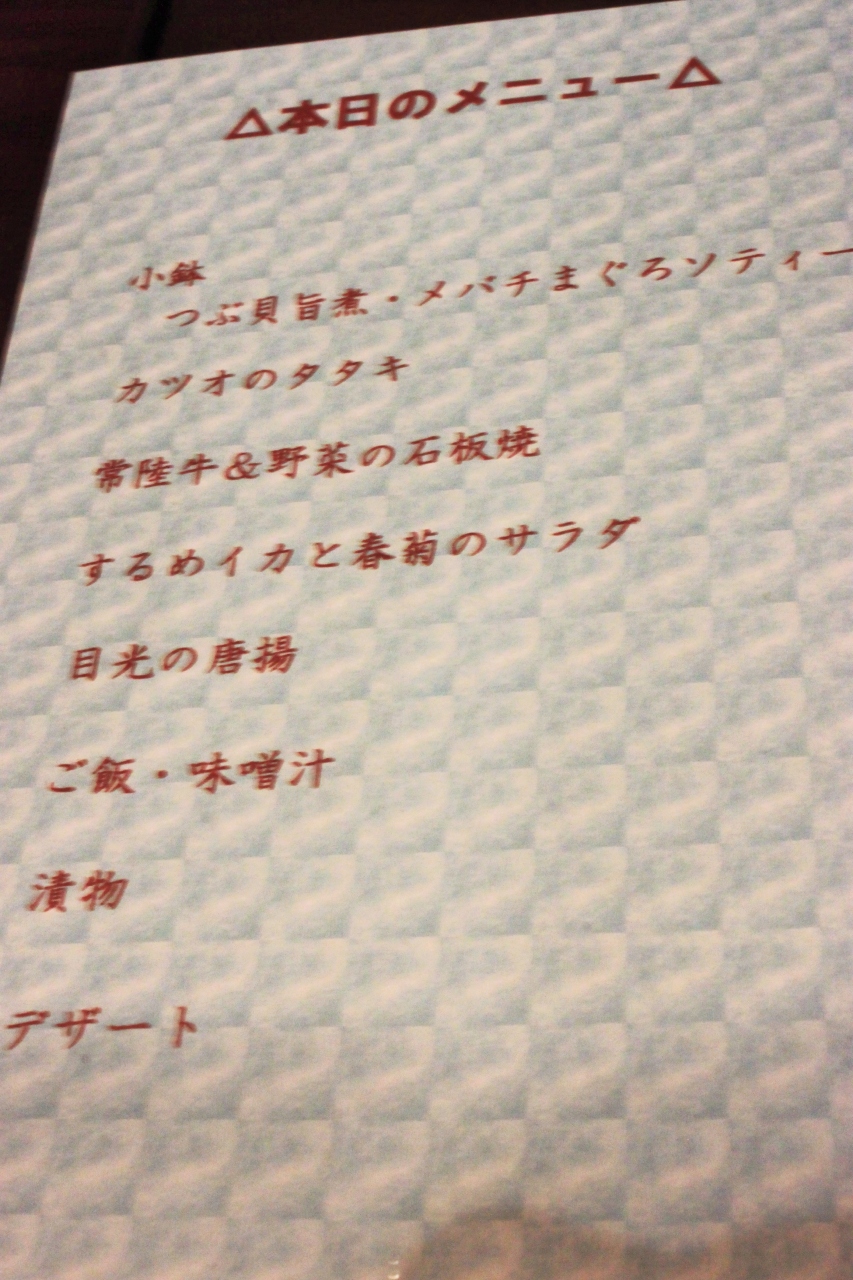 △本日のメニュー△
小鉢
つぶ貝旨煮・メバチまぐろソティー
カツオのタタキ
常陸牛&野菜の石板焼
するめイカと春菊のサラダ
目光の唐揚
ご飯・味噌汁
漬物
デザート